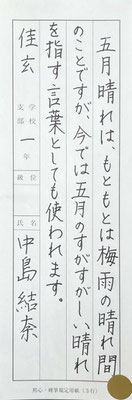 五月晴れは、もともとは梅雨の晴れ間
のことですが、今では五月のすがすがしい晴れ
を指す言葉としても使われます。
佳玄
学校
支部
一年
級位
氏名
中島結奈
初心・硬筆規定用紙(3行)